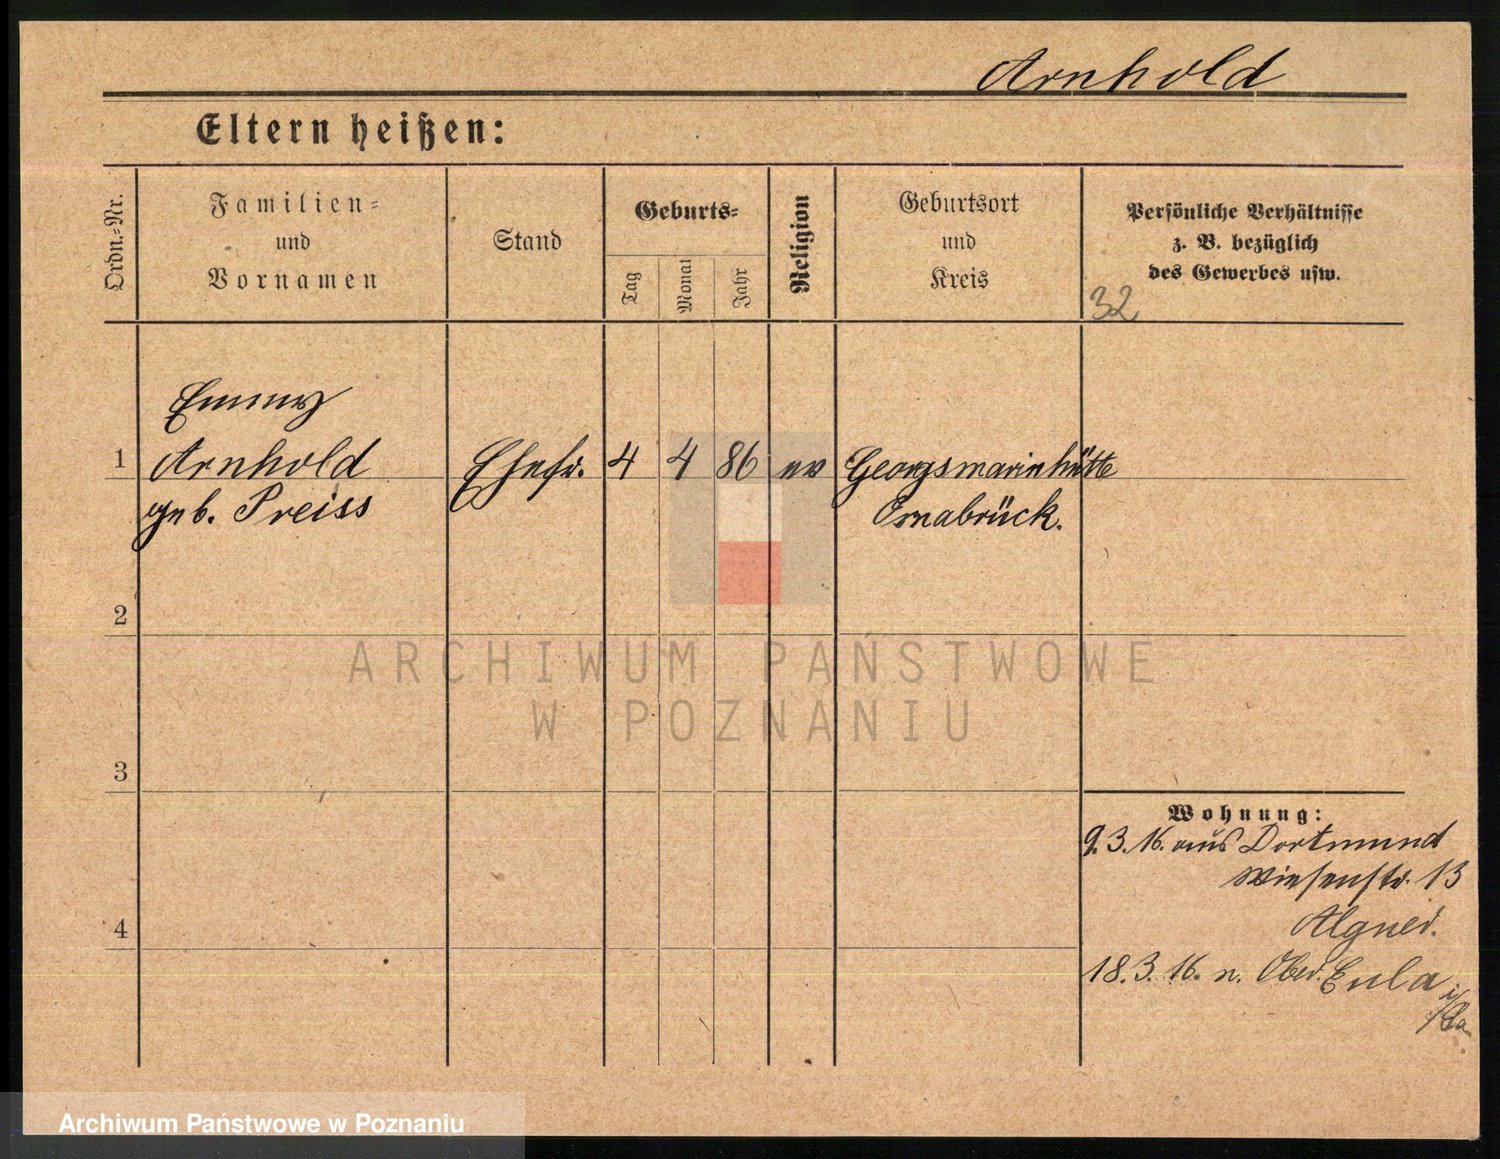 Arnhold
Eltern heißen:
Ordn.-Nr.
Familien-
und
Vornamen
Stand
Geburts-
Tag
Monat
Jahr
Religion
Geburtsort
und
Kreis
Persönliche Verhältnisse
z. B. bezüglich
des Gewerbes usw.
32
Emmy
1 Arnhold Ehefr. 4 4 86 ev Georgsmarinhütte
geb. Preiss Osnabrück.
2
ARCHIWUM PAŃSTWOWE
W POZNANIU
3
Wohnung:
9.3.16. aus Dortmund
Wiesenstr. 13
4
18.3.16. n. Ober. Eula
i/Sa
Archiwum Państwowe w Poznaniu